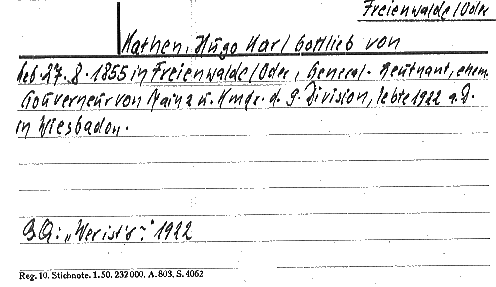 Freienwalde/Oder
Kathen, Hugo Karl Gottlieb von
geb. 27. 8. 1855 in Freienwalde/Oder, General-Leutnant, ehem.
Gouverneur von Mainz u. Kmdr. d. 9. Division, lebte 1922 a. D.
in Wiesbaden.
BQ: „Wer ist's?" 1922
Reg. 10. Stichnote. 1. 50. 232000. A. 803. S. 4062